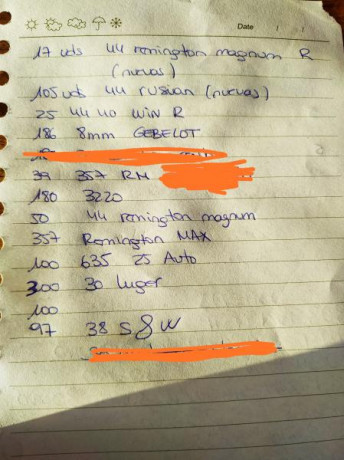 Date / /
17 uds 44 remington magnum R
(nuevas)
105 uds 44 rusian (nuevas)
25 44 40 WIN R
186 8mm GEBELOT
39 357 RM
180 3220
50 44 remington magnum
357 Remington MAX
100 635 25 Auto
300 30 luger
100
97 38 S & W